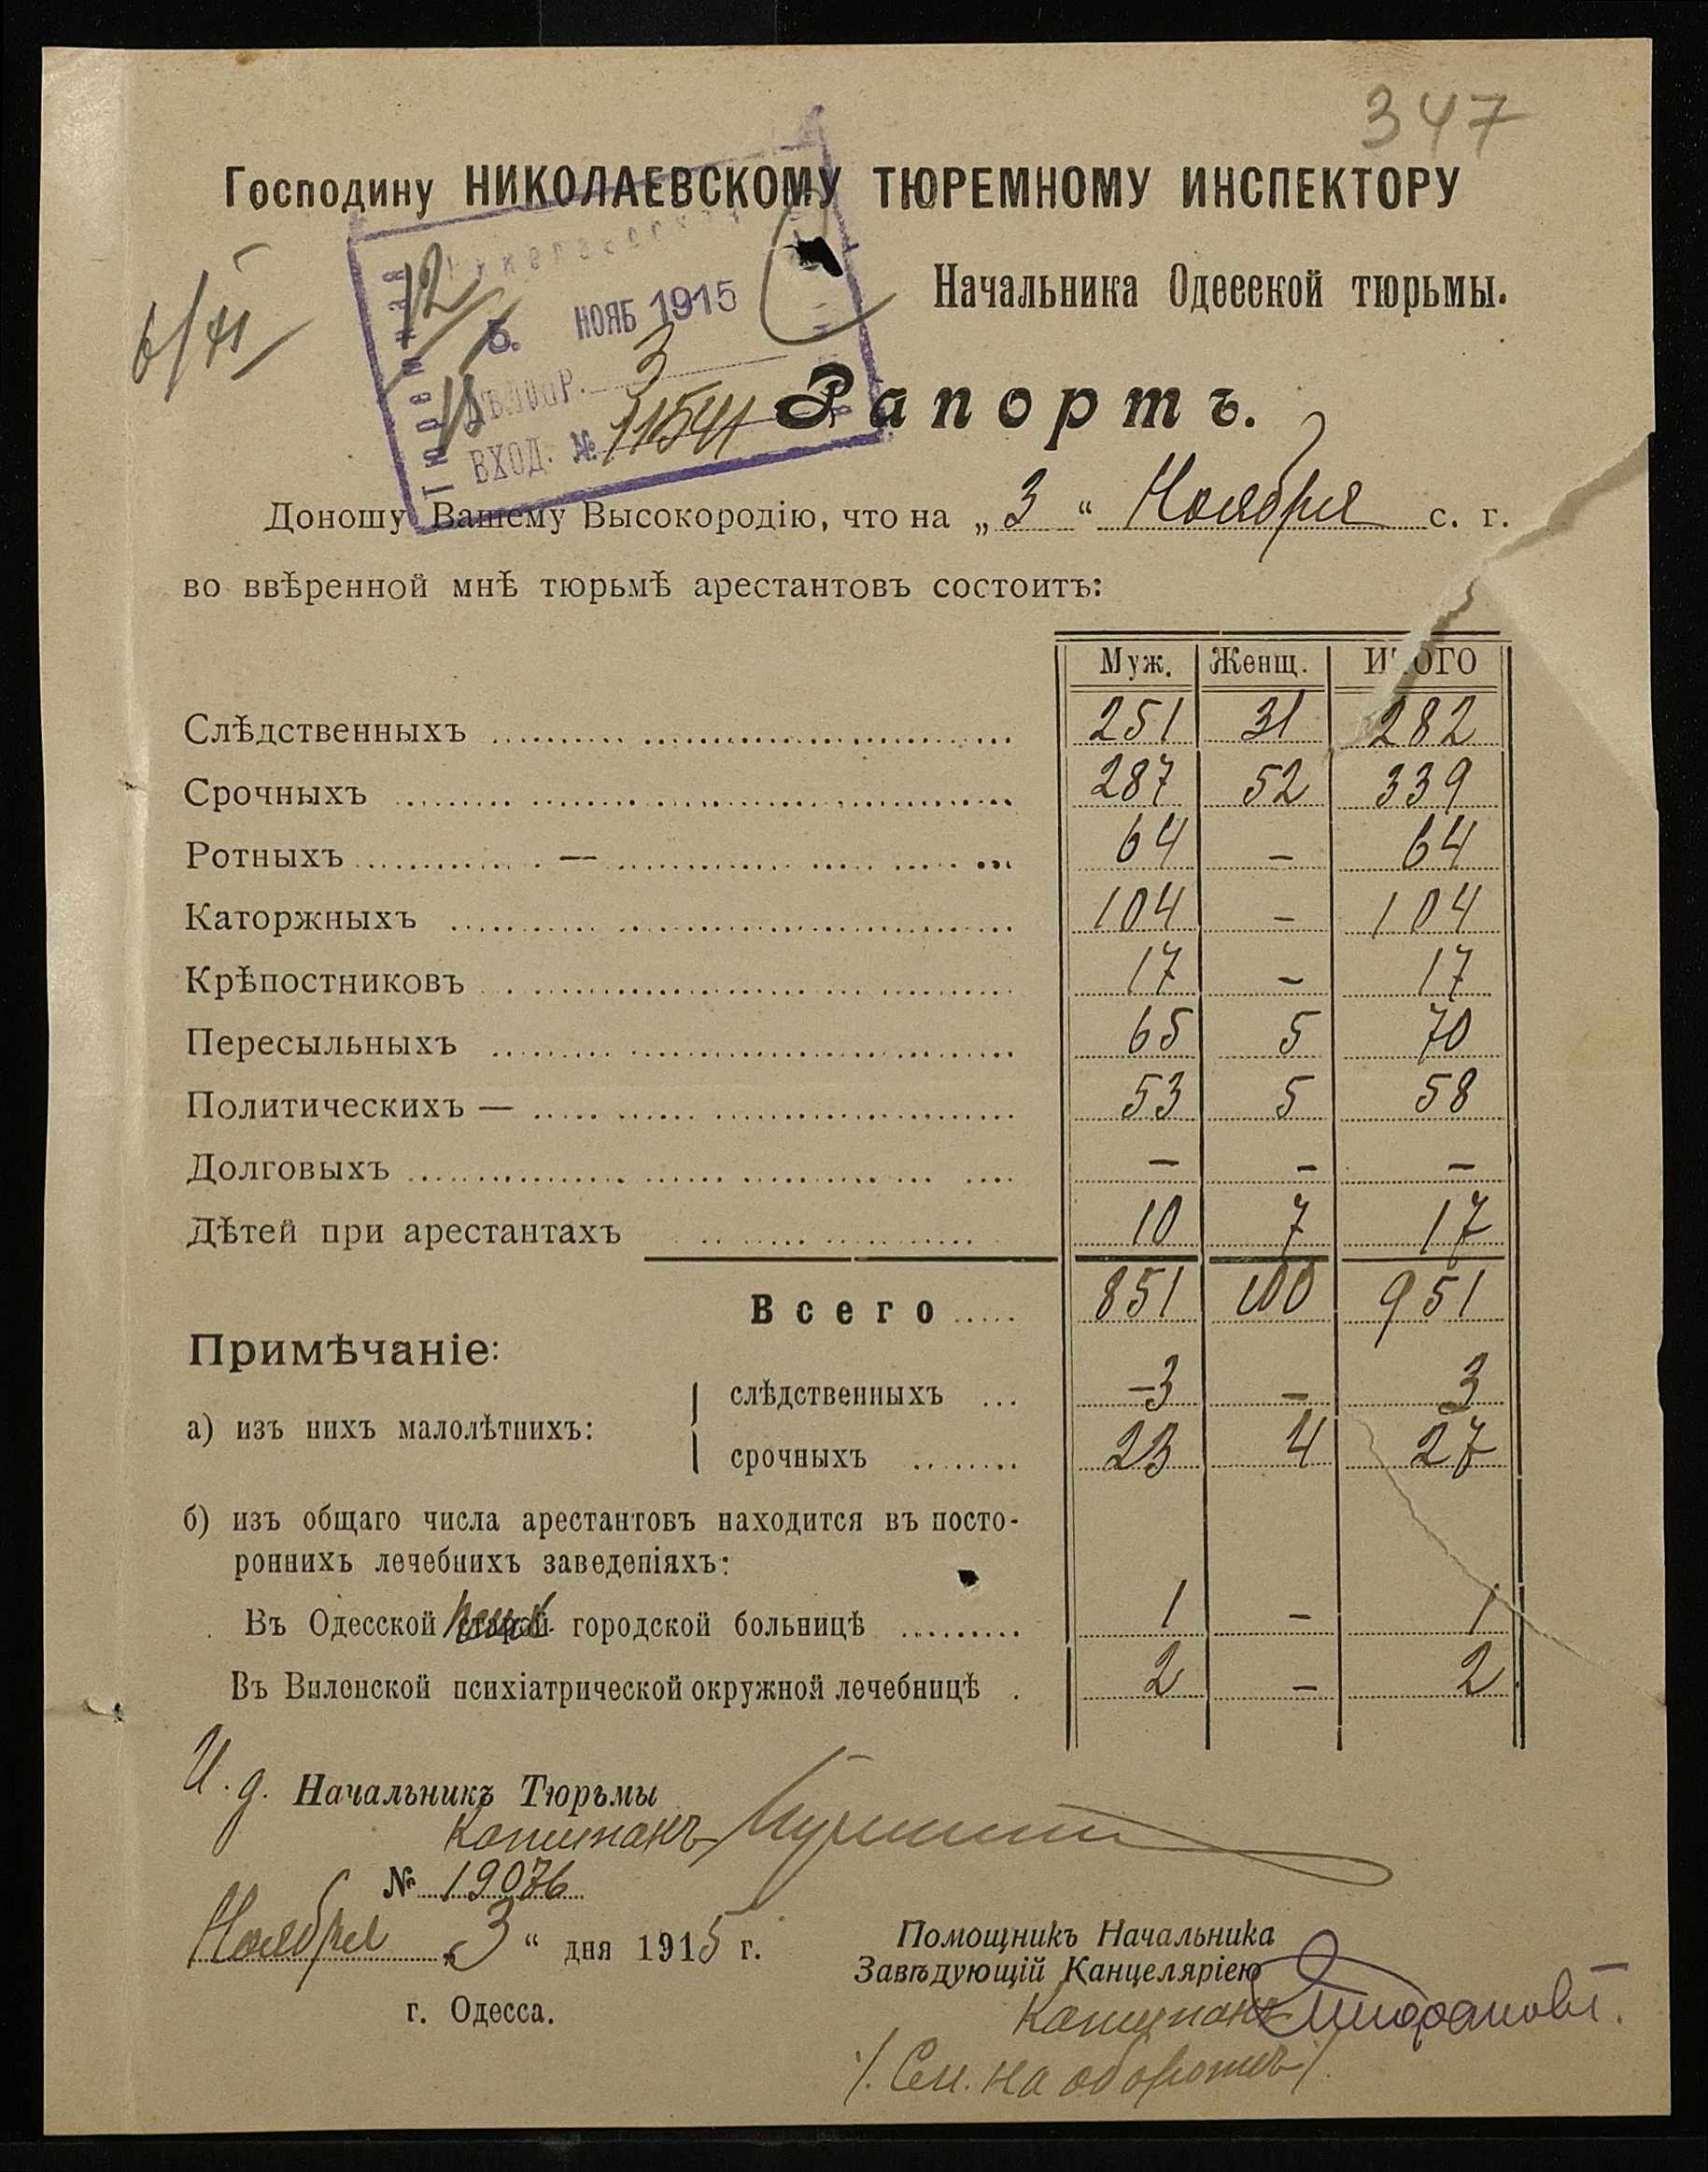 347
Господину НИКОЛАЕВСКОМУ ТЮРЕМНОМУ ИНСПЕКТОРУ
Начальника Одесской тюрьмы.
6/XI
12/XI
5. НОЯБ 1915
3
ВХОД. № 11541
Рапортъ.
Доношу Вашему Высокородію, что на „3“ Ноября с. г.
во ввѣренной мнѣ тюрьмѣ арестантовъ состоитъ:
Муж. Женщ. ИТОГО
Слѣдственныхъ 251 31 282
Срочныхъ 287 52 339
Ротныхъ — 64 – 64
Каторжныхъ 104 – 104
Крѣпостниковъ 17 – 17
Пересыльныхъ 65 5 70
Политическихъ — 53 5 58
Долговыхъ – – –
Дѣтей при арестантахъ 10 7 17
Всего 851 100 951
Примѣчаніе:
а) изъ нихъ малолѣтнихъ:
слѣдственныхъ –3 – 3
срочныхъ 23 4 27
б) изъ общаго числа арестантовъ находится въ посто-
роннихъ лечебнихъ заведеніяхъ:
Въ Одесской городской больницѣ 1 – 1
Въ Виленской психіатрической окружной лечебницѣ 2 – 2
И. д. Начальникъ Тюрьмы
Капитанъ
№ 19076
Ноября „3“ дня 1915 г.
г. Одесса.
Помощникъ Начальника
Завѣдующій Канцеляріею
Капитанъ
/. См. на оборотѣ /.